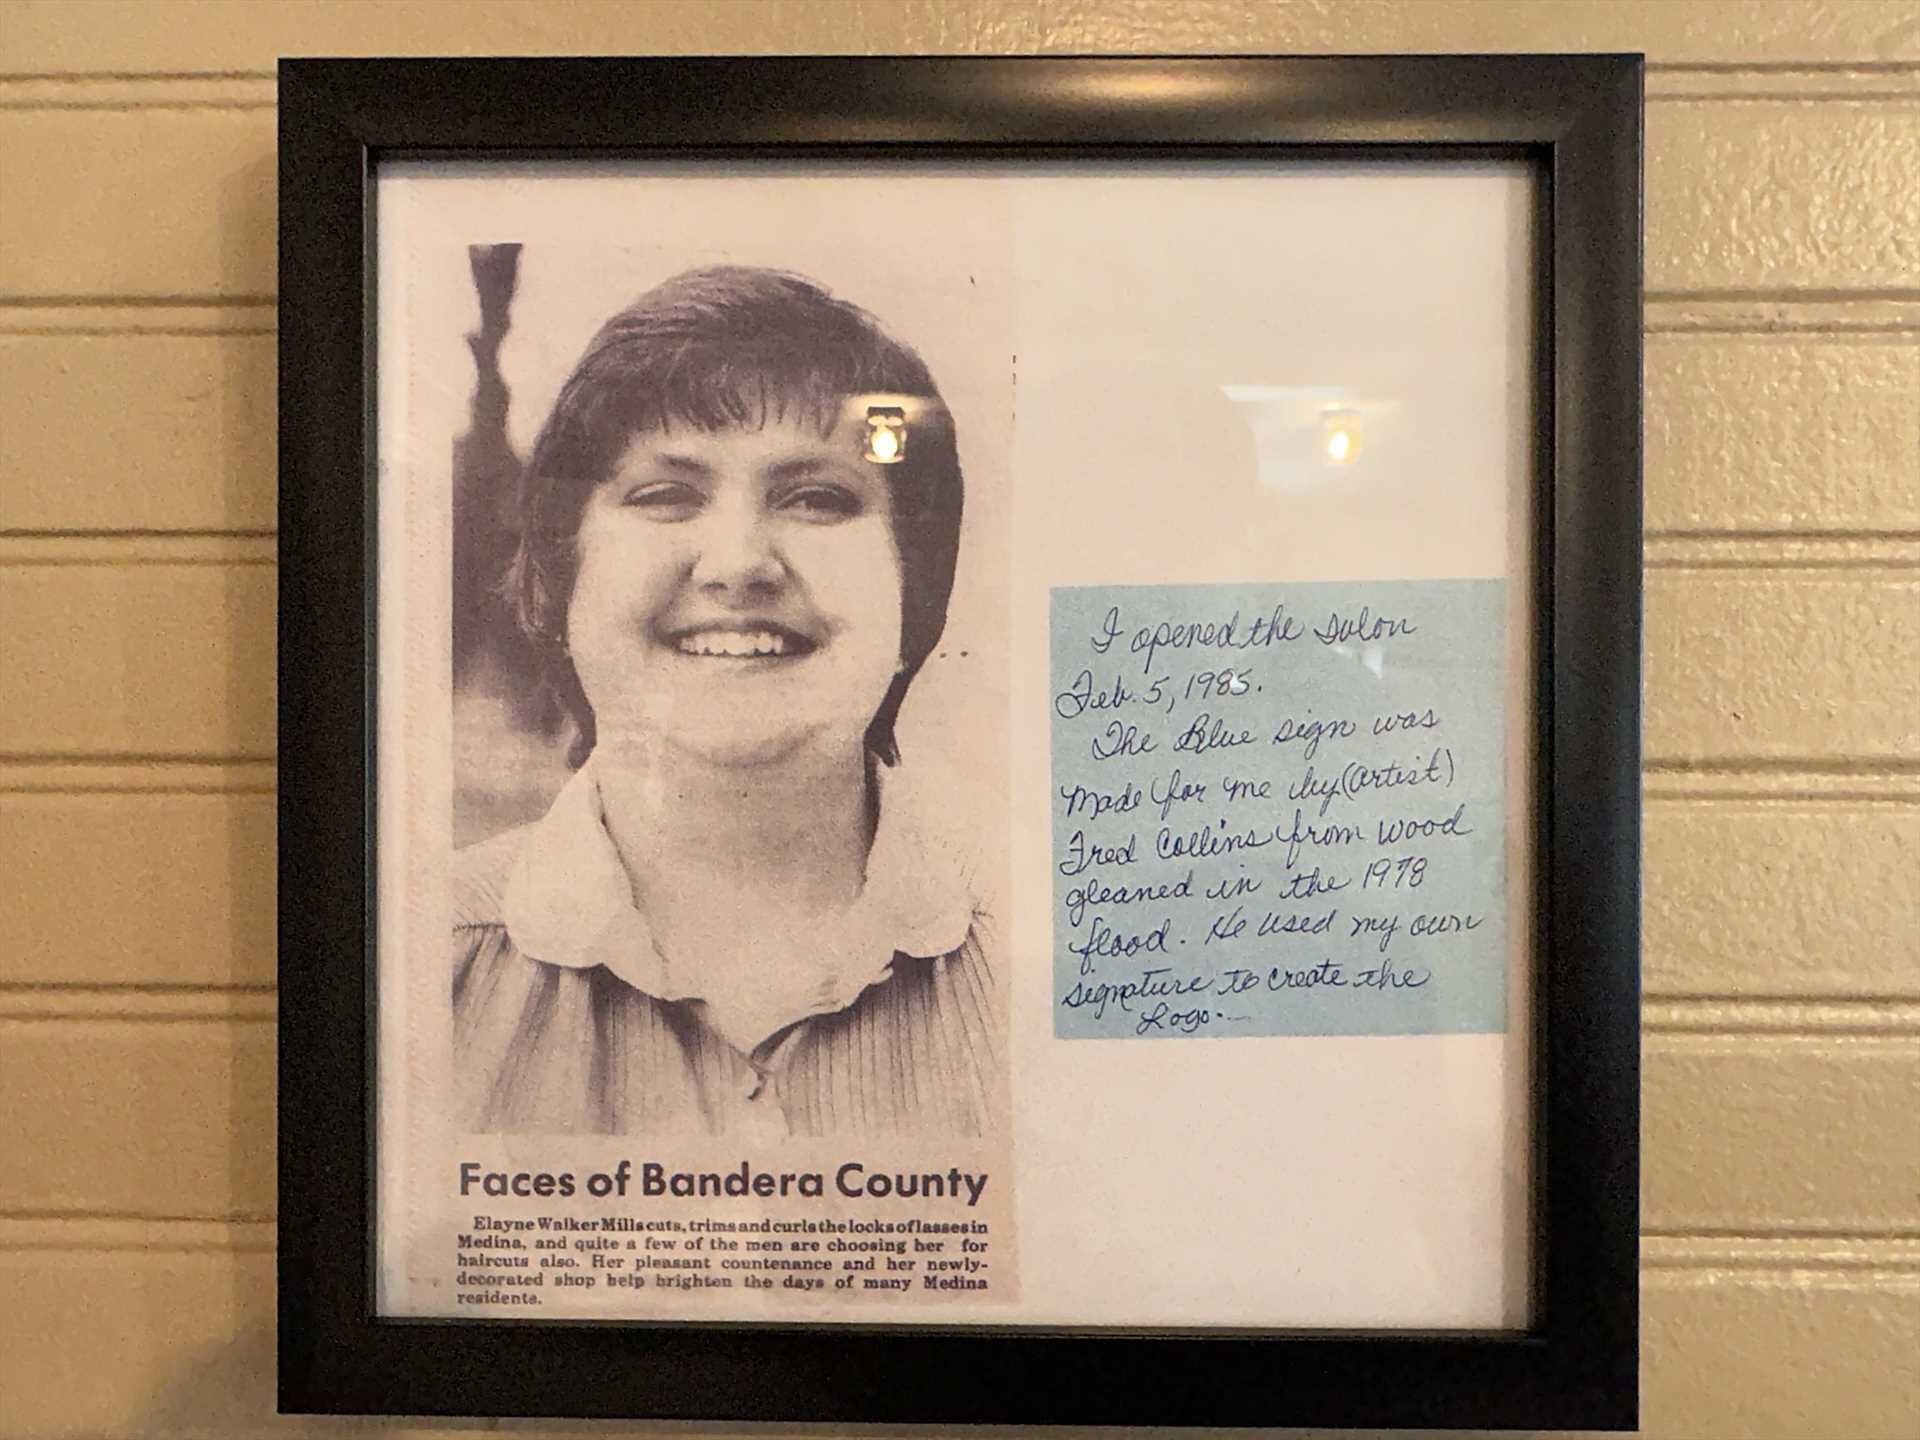 Faces of Bandera County
Elayne Walker Mills cuts, trims and curls the locks of lasses in
Medina, and quite a few of the men are choosing her for
haircuts also. Her pleasant countenance and her newly-
decorated shop help brighten the days of many Medina
residents.
I opened the salon
Feb. 5, 1985.
The Blue sign was
Made for me by (artist)
Fred Collins from wood
gleaned in the 1978
flood. He used my own
signature to create the
Logo.